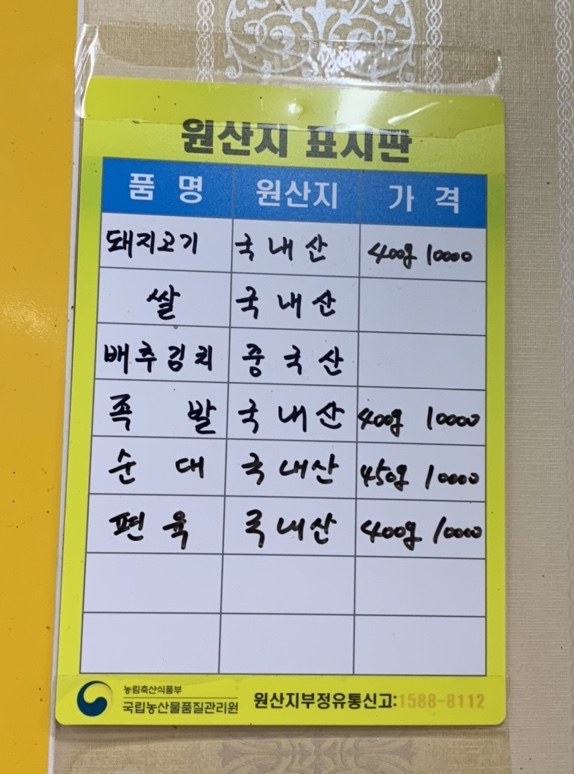 원산지 표시판
품 명 원산지 가 격
돼지고기 국내산 400g 10000
쌀 국내산
배추김치 중국산
족 발 국내산 400g 10000
순 대 국내산 450g 10000
편 육 국내산 400g 10000
농림축산식품부
국립농산물품질관리원 원산지부정유통신고:1588-8112